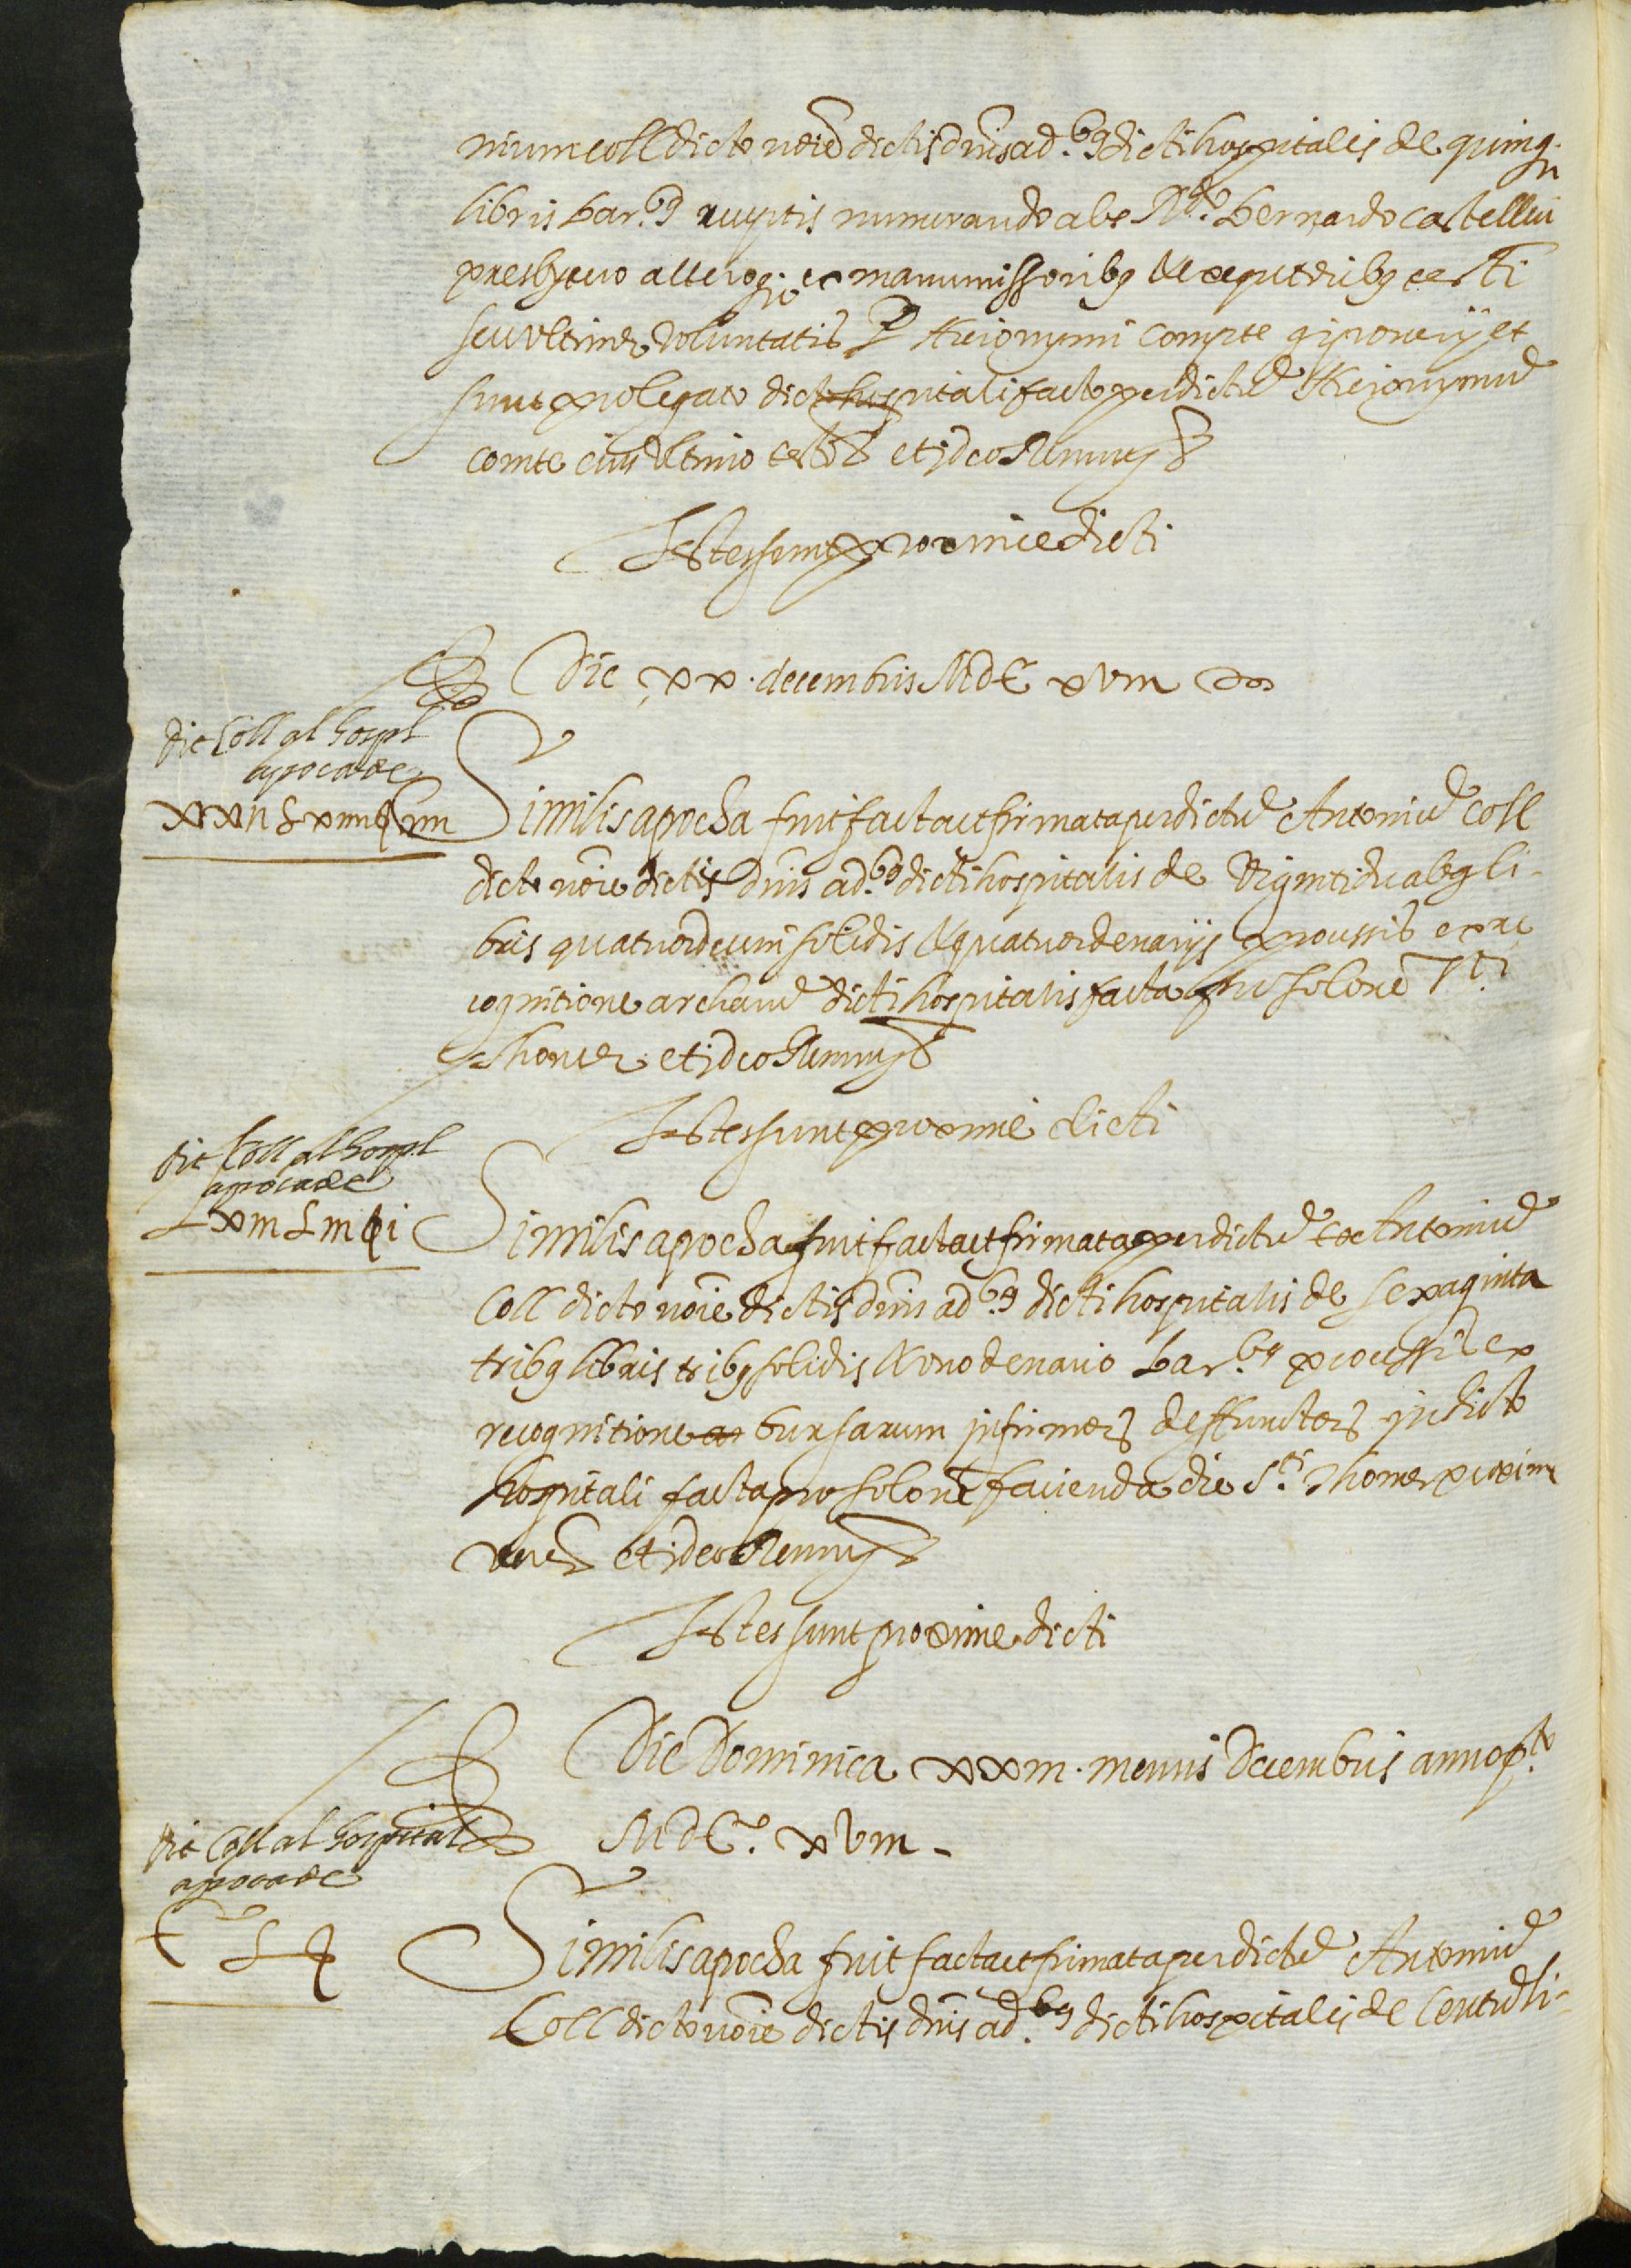 nium coll dicto noīe dictis dnis ad.bꝫ dicti hospitalis de quinq.
libris bar.bꝫ receptis numerando abs R.do bernardo castellvi
presbytero altero q. ex manumissoribꝫ & exequtoribꝫ testi
seu ultimæ voluntatis q. Hieronymi Compte giponerij et
sunt pro legato dicto hospitali facto per dictū Hieronymū
comte eius ultimo testō & et ideo Renuns &
Testes sunt proxime dicti
Die xx. decembris MdC xviii
dit Coll al hospl
apoca de
xxii L xiiii s iiii
Similis apocha fuit facta et firmata per dictū Antoniū Coll
dicto noīe dictis dnis ad.bꝫ dicti hospitalis de viginti duabꝫ li-
bris quatuordecim solidis & quatuor denarijs processis ex re
cognitione archarū dicti hospitalis facta pro solone S.ti
Thomæ et ideo Renuns &
Testes sunt proxime dicti
dit Coll al hospl
apoca de
Lxiii L iii s i
Similis apocha fuit facta et firmata per dictū Antoniū
Coll dicto noīe dictis dnis ad.bꝫ dicti hospitalis de sexaginta
tribꝫ libris tribꝫ solidis & uno denario bar.bꝫ processis ex
recognitione bursarum infirmors deffunctors in dicto
hospitali facta pro solone facienda die S.ti Thomæ proxime
et ideo Renuns &
Testes sunt proxime dicti
Die Dominica xxiii. mensis Decembris anno p.to
MdC. xviii -
dit Coll al hospital
apoca de
C L s
Similis apocha fuit facta et firmata per dictū Antoniū
Coll dicto noīe dictis dnis ad.bꝫ dicti hospitalis de Centū li-